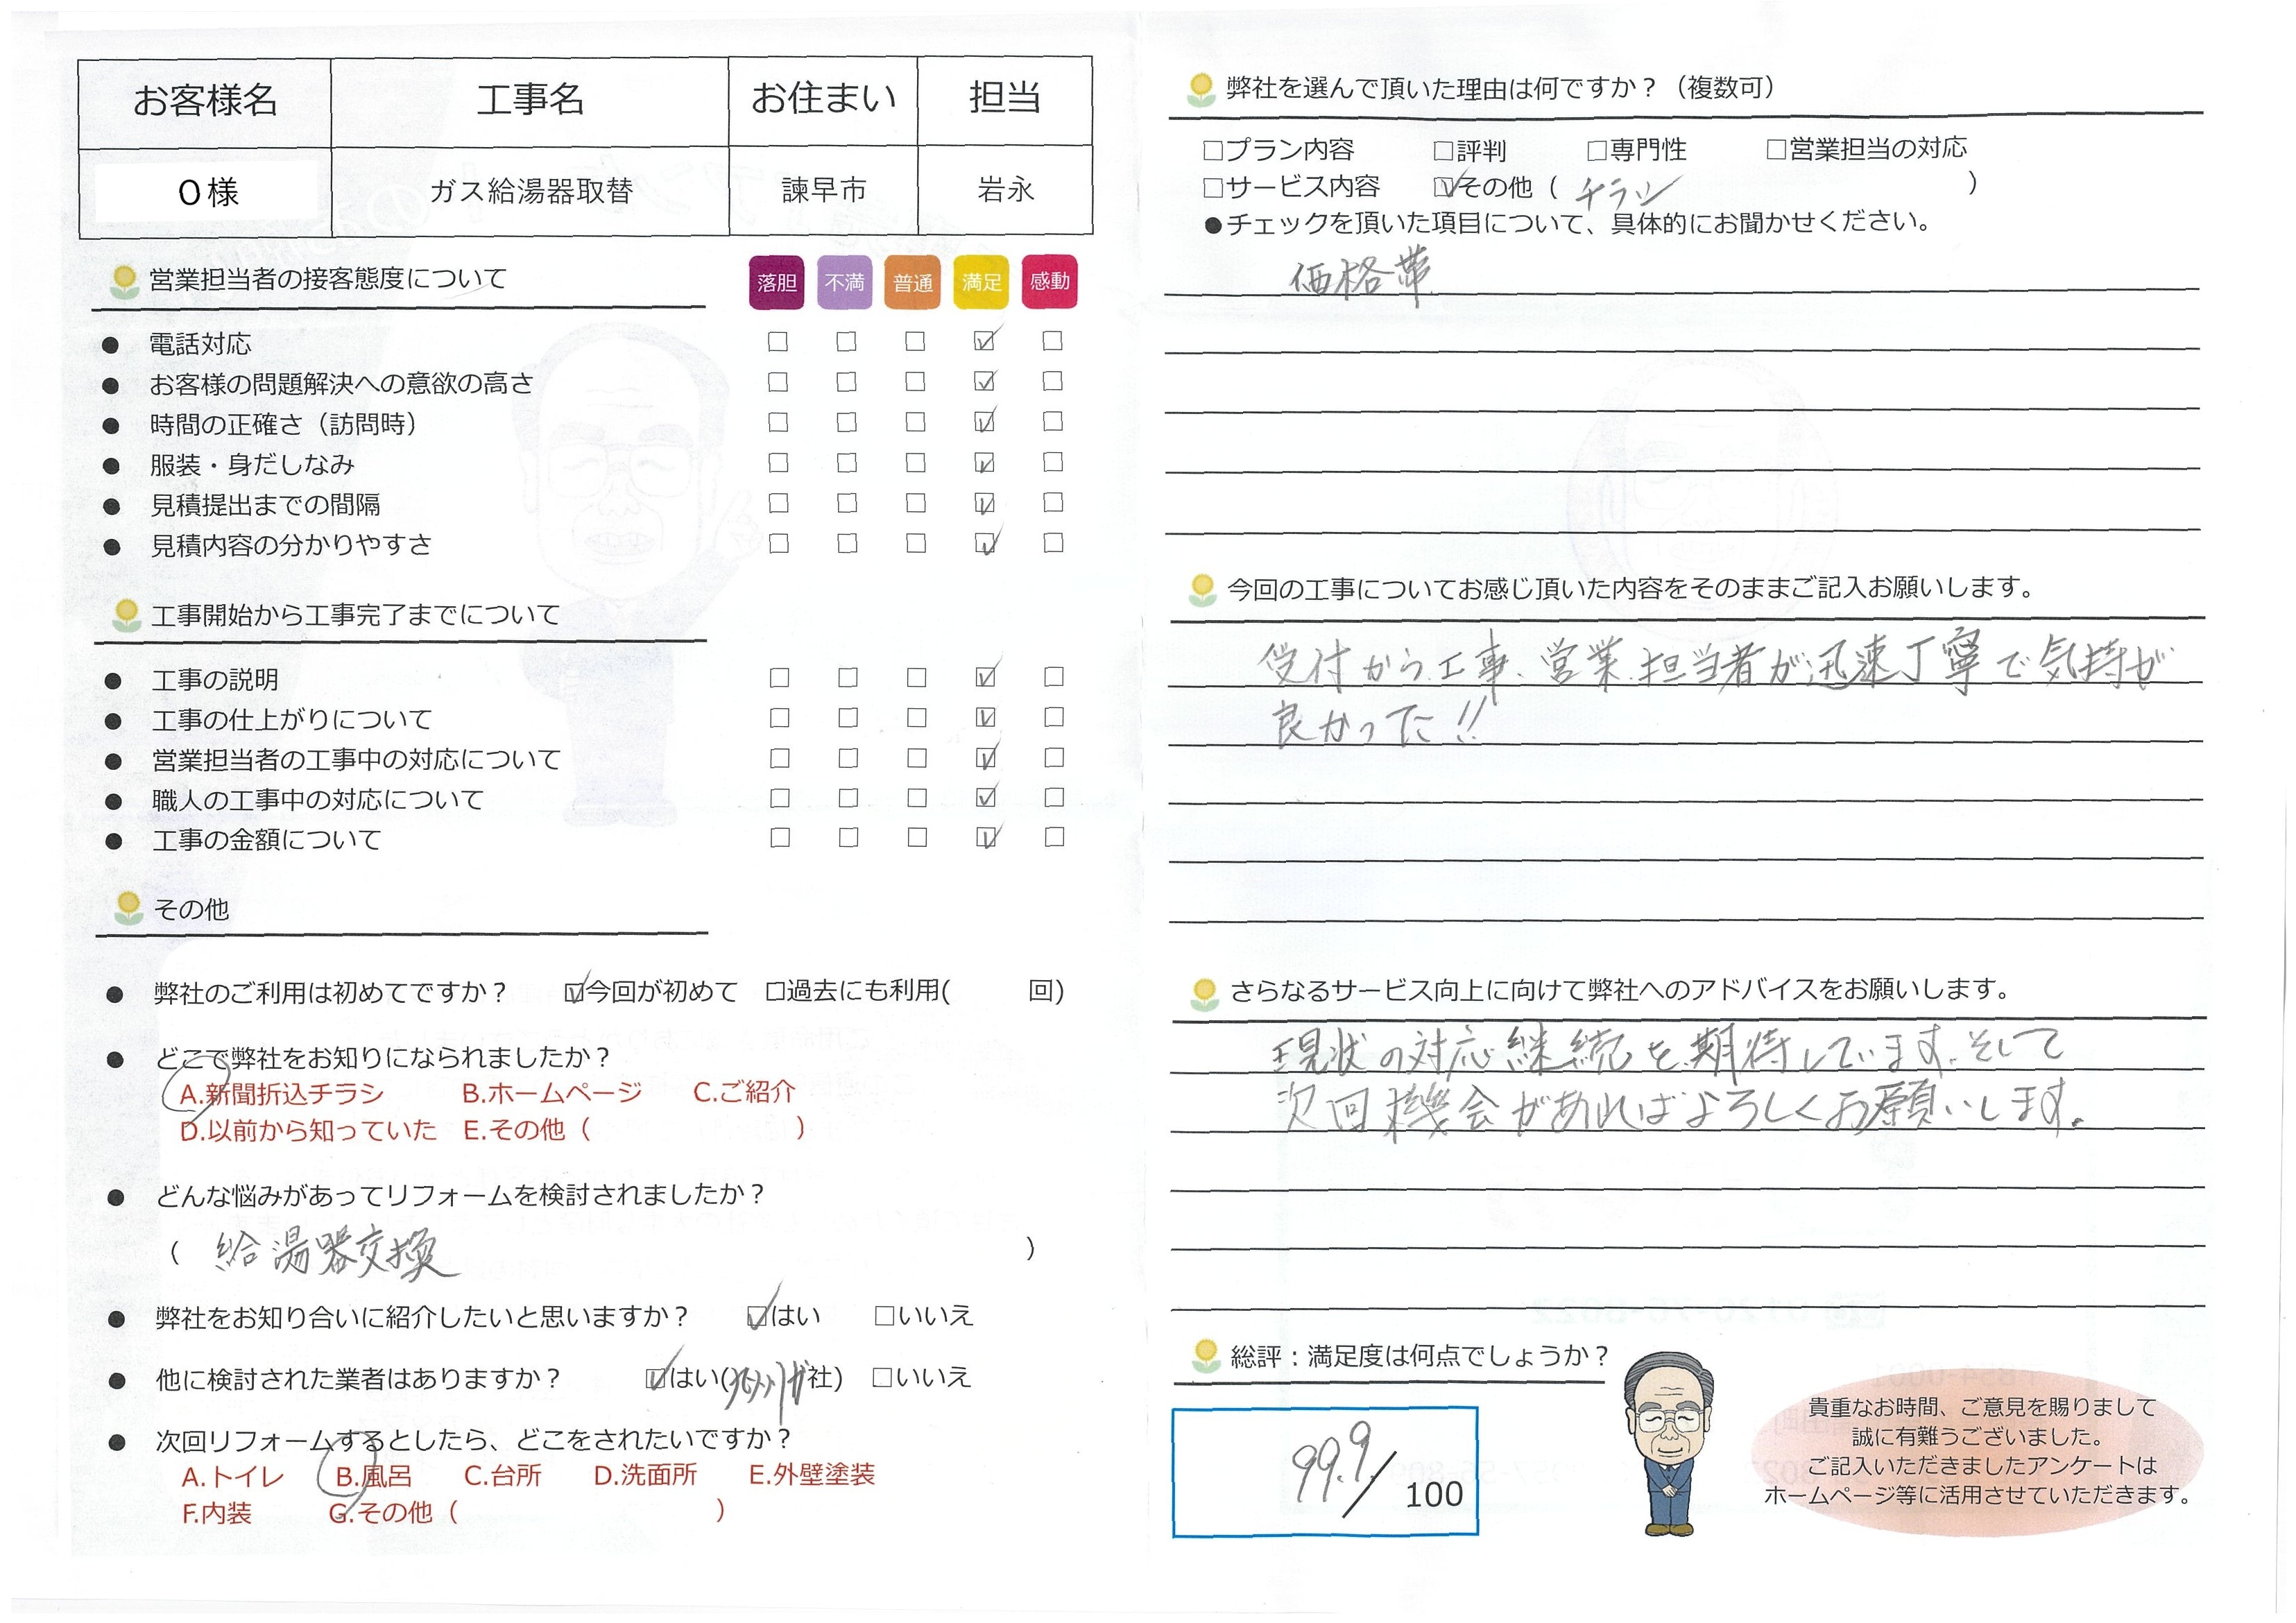 お客様名 工事名 お住まい 担当
O様 ガス給湯器取替 諫早市 岩永
営業担当者の接客態度について 落胆 不満 普通 満足 感動
● 電話対応 □ □ □ ☑ □
● お客様の問題解決への意欲の高さ □ □ □ ☑ □
● 時間の正確さ（訪問時） □ □ □ ☑ □
● 服装・身だしなみ □ □ □ ☑ □
● 見積提出までの間隔 □ □ □ ☑ □
● 見積内容の分かりやすさ □ □ □ ☑ □
工事開始から工事完了までについて
● 工事の説明 □ □ □ ☑ □
● 工事の仕上がりについて □ □ □ ☑ □
● 営業担当者の工事中の対応について □ □ □ ☑ □
● 職人の工事中の対応について □ □ □ ☑ □
● 工事の金額について □ □ □ ☑ □
その他
● 弊社のご利用は初めてですか？ ☑今回が初めて □過去にも利用( 回)
● どこで弊社をお知りになられましたか？
A.新聞折込チラシ B.ホームページ C.ご紹介
D.以前から知っていた E.その他（ ）
● どんな悩みがあってリフォームを検討されましたか？
（ 給湯器交換 ）
● 弊社をお知り合いに紹介したいと思いますか？ ☑はい □いいえ
● 他に検討された業者はありますか？ ☑はい( 社) □いいえ
● 次回リフォームするとしたら、どこをされたいですか？
A.トイレ B.風呂 C.台所 D.洗面所 E.外壁塗装
F.内装 G.その他（ ）
弊社を選んで頂いた理由は何ですか？（複数可）
□プラン内容 □評判 □専門性 □営業担当の対応
□サービス内容 ☑その他（ チラシ ）
●チェックを頂いた項目について、具体的にお聞かせください。
価格帯
今回の工事についてお感じ頂いた内容をそのままご記入お願いします。
受付から、工事、営業、担当者が迅速丁寧で気持が
良かった!!
さらなるサービス向上に向けて弊社へのアドバイスをお願いします。
現状の対応継続を期待しています。そして
次回機会があればよろしくお願いします。
総評：満足度は何点でしょうか？
99.9/100
貴重なお時間、ご意見を賜りまして
誠に有難うございました。
ご記入いただきましたアンケートは
ホームページ等に活用させていただきます。